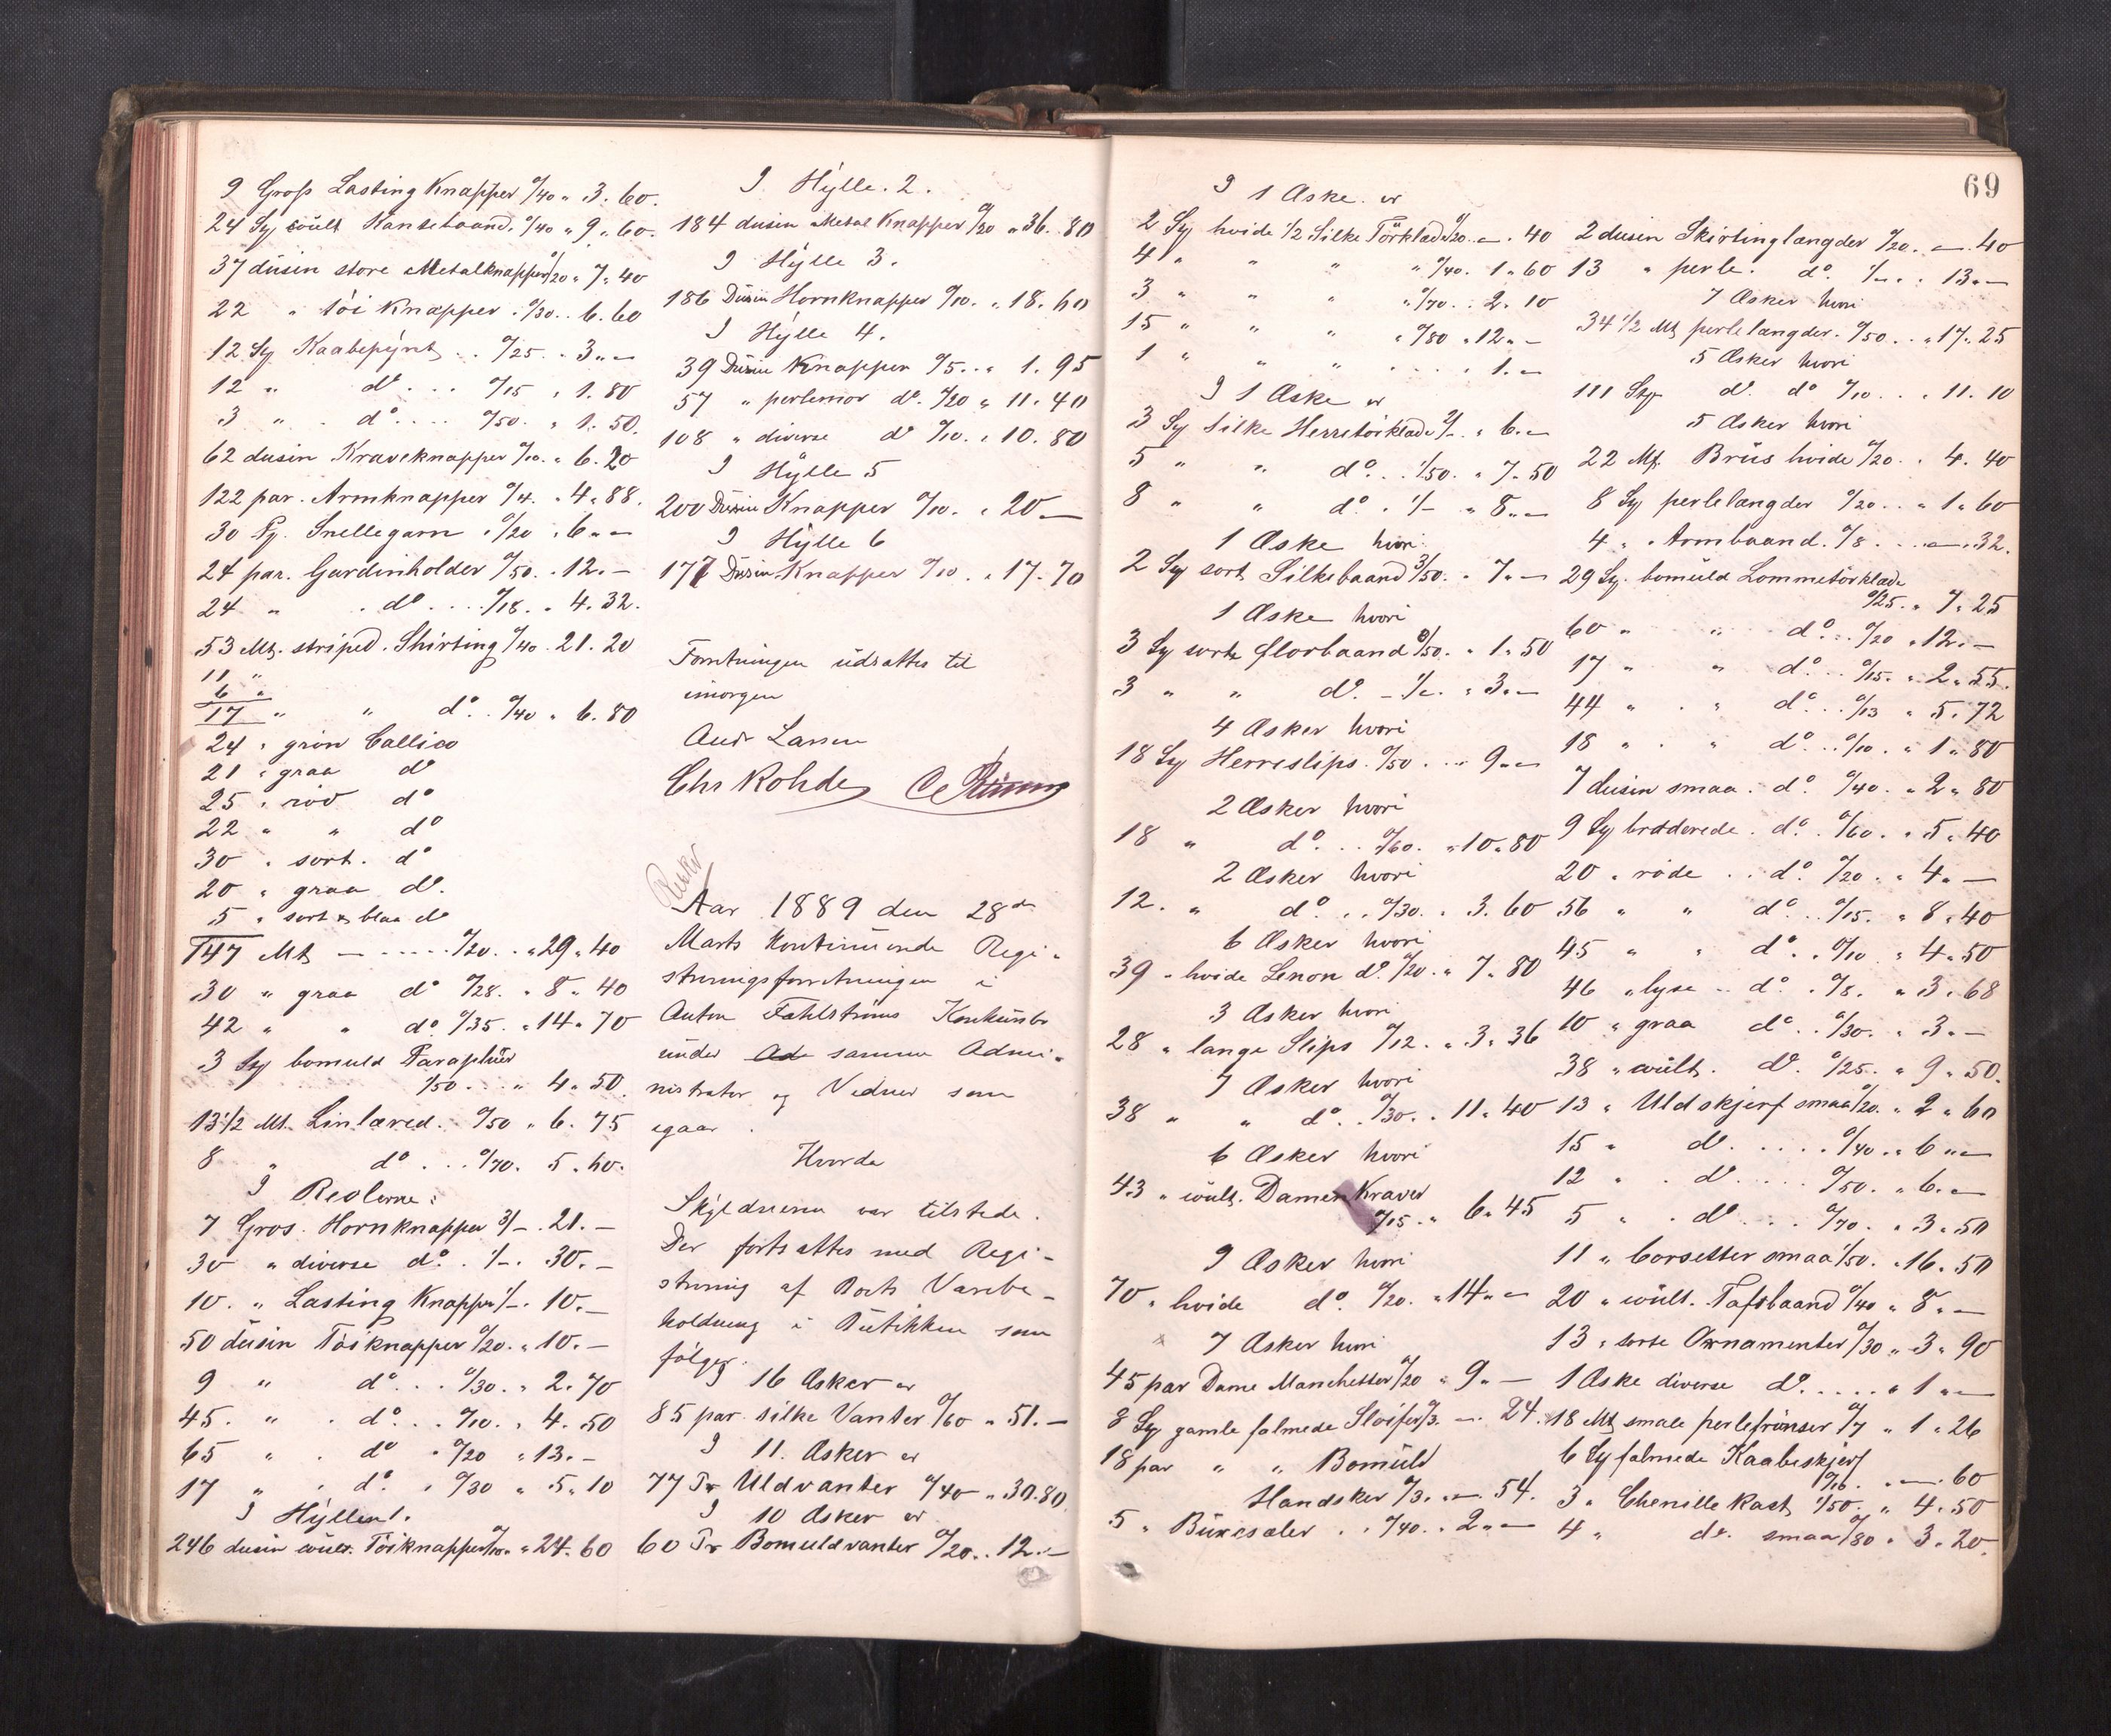 9 Gross Lasting Knapper 0/40 " 3. 60.
24 Sy coult Kansebaand. 0/40 " 9 " 60.
37 dusin store Metalknapper 0/20 " 7 " 40
22 " töi Knapper . 0/30 . . 6. 60
12 Sy Kaabepynt . . 0/25 . . 3 " —
12 " do . . . 0/15 " 1. 80
3 " . do . . . . 0/50. " 1. 50.
62 dusin Kraveknapper 0/10. " 6. 20
122 par. Armknapper 0/4. " 4 " 88.
30 Pg. Snellegarn . 0/20 . 6 " —
24 par. Gardinholder 0/50. . 12. —
24 " . do . . . . 0/18. " 4. 32.
53 Mt. striped. Shirting 0/40 . 21. 20
11 "
6 "
17 " " do . . 0/40 " 6. 80
24 " grön Callico
21 " graa do
25 " röd do
22 " " do
30 " sort. do
20 " graa do.
5 " sort & blaa do
147 Mt — . . . . . 0/20. " 29 " 40
30 " graa do 0/28. " 8 " 40
42 " " do 0/35. " 14 " 70
3 Sy bomuld Paraplüer
1/50 . . . " 4 " 50.
13 1/2 Mt. Linlæred. . 0/50 " 6. 75
8 " do . . . 0/70. 5. 60.
I Reolerne:
7 Gros. Hornknapper 3/— . 21. —
30 " diverse do. . 1/— . 30. —
10. " Lasting Knapper 1/— . 10. —
50 dusin Töiknapper 0/20. " 10. —
9 " do . . . 0/30. " 2. 70
45. " . do . . . 0/10. " 4. 50
65 " . do . 0/20 " 13. —
17 " . do. . 0/30 " 5. 10
I Hyllen 1.
246 dusin coult. Töiknapper 0/10. " 24. 60
I Hylle. 2.
184 dusin Metal Knapper 0/20 " 36. 80
I Hylle 3.
186 Dusin Hornknapper 0/10. " 18. 60
I Hylle 4.
39 Dusin Knapper 0/5 . . " 1. 95
57 " perlemor do. 0/20 " 11. 40
108 " diverse do 0/10. " 10. 80
I Hylle 5
200 Dusin Knapper 0/10. " 20 —
I Hylle 6
177 Dusin Knapper 0/10. " 17. 70
Forretningen udsattes til
imorgen
Andr Larsen
Chr Rohde
Aar 1889 den 28de
Marts Kontinuerede Regi-
streringsforretningen i
Anton Fahlströms Konkursbo
under Ade samme Admi-
nistrator og Vidner som
igaar.
Hvorda
Skyldneren var tilstede.
Der fortsattes med Regi-
strering af Boets Varebe-
holdning i Butikken som
følger.
I 16 Æsker er
85 par. silke Vanter 0/60 " 51. —
I 11. Æsker er
77 Pr Uldvanter 0/40 " 30. 80.
I 10 Æsker er
60 Pr Bomuldvanter 0/20. . 12. —
69
I 1 Æske er
2 Sy hvide 1/2 Silke Törklæde 0/20. — . 40
4 " " " " 0/40. 1 " 60
3 " " " " 0/70. . 2. 10
15 " " " " 0/80 " 12 " —
1 " " " . . . . " 1. —
I 1 Æske er
3 Sy Silke Herretörklæde 2/— . " 6. —
5 " " do . . 1/50. " 7. 50
8 " " do. . 1/— " 8 " —
1 Æske hvori
2 Sy sort Silkebaand 3/50. . 7. —
1 Æske hvori
3 Sy sorte florbaand 0/50. " 1. 50
3 " " do. — 1/—. " 3. —
4 Æsker hvori
18 Sy Herreslips. 0/50 . . . " 9 " —
2 Æsker hvori
18 " do. . . 0/60. " 10 " 80
2 Æsker hvori
12. " do . . . 0/30. . 3. 60
6 Æsker hvori
39 " hvide Lenon do. 0/20. " 7. 80
3 Æsker hvori
28 " lange Slips 0/12. " 3. 36
7 Æsker hvori
38 " " do. . 0/30. . . 11. 40
6 Æsker hvori
43 " coult. Damer Kraver
0/15. " 6. 45
9 Æsker hvori
70 " hvide do. 0/20. " 14 " —
7 Æsker hvori
45 par Dame Manchetter 0/20 " 9 " —
8 Sy gamle falmede Slöifer 0/3. — . 24.
18 par " " Bomuld
Handsker 0/3. . — . 54.
5 " Buxesæler . . 0/40. . 2 " —
2 dusin Skirtinglængder 0/20. . — . 40
13 " perle. do. 1/— . . : 13. —
7 Æsker hvori
34 1/2 Mt perlelængder. 0/50 . . " 17. 25
5 Æsker hvori
111 Sty do. do 0/10 . . . . 11. 10
5 Æsker hvori
22 Mt. Brüs hvide 0/20. . 4. 40
8 Sy perlelængder 0/20 . . " 1 " 60
4 " Armbaand. 0/8 . . . — . 32.
29 Sy. bomüld Lommetörklæde
0/25. " 7 " 25
60 " " do . . 0/20 " 12. —
17 " " do . . 0/15. " 2 " 55.
44 " . " do . . . 0/13 " 5. 72
18 " . " do . . 0/10. " 1 " 80
7 dusin smaa. do. 0/40. " 2 " 80
9 Sy broderede. do. . 0/60. " 5. 40
20 " röde . . do. 0/20. " 4. —
56 " " do. . 0/15. " 8. 40
45 " " do. . 0/10 " 4. 50
46 " lyse . . do. . 0/8. " 3. 68
10 " graa do. . . 0/30. " 3. —
38 " coult. do. 0/25. " 9 " 50.
13 " Uldskjerf smaa 0/20. " 2 " 60
15 " do . . . . . 0/40 . " 6 " —
12 " . do . . . . 0/50. " 6. —
5 " . do . . . 0/70. " 3. 50
11 " Corsetter smaa 1/50. " 16. 50
20 " coult. Tafsbaand 0/40 " 8. —
13 " sorte Ornamenter 0/30 " 3. 90
1 Æske diverse do. . . . . " 1 " —
18 Mt smale perlefrünser 0/7 " 1 " 26
6 Sy falmede Kaabeskjerf
0/10. . — . 60
3 " Chenille Kast 1/50. " 4. 50
4 " do. smaa 0/80 " 3. 20.